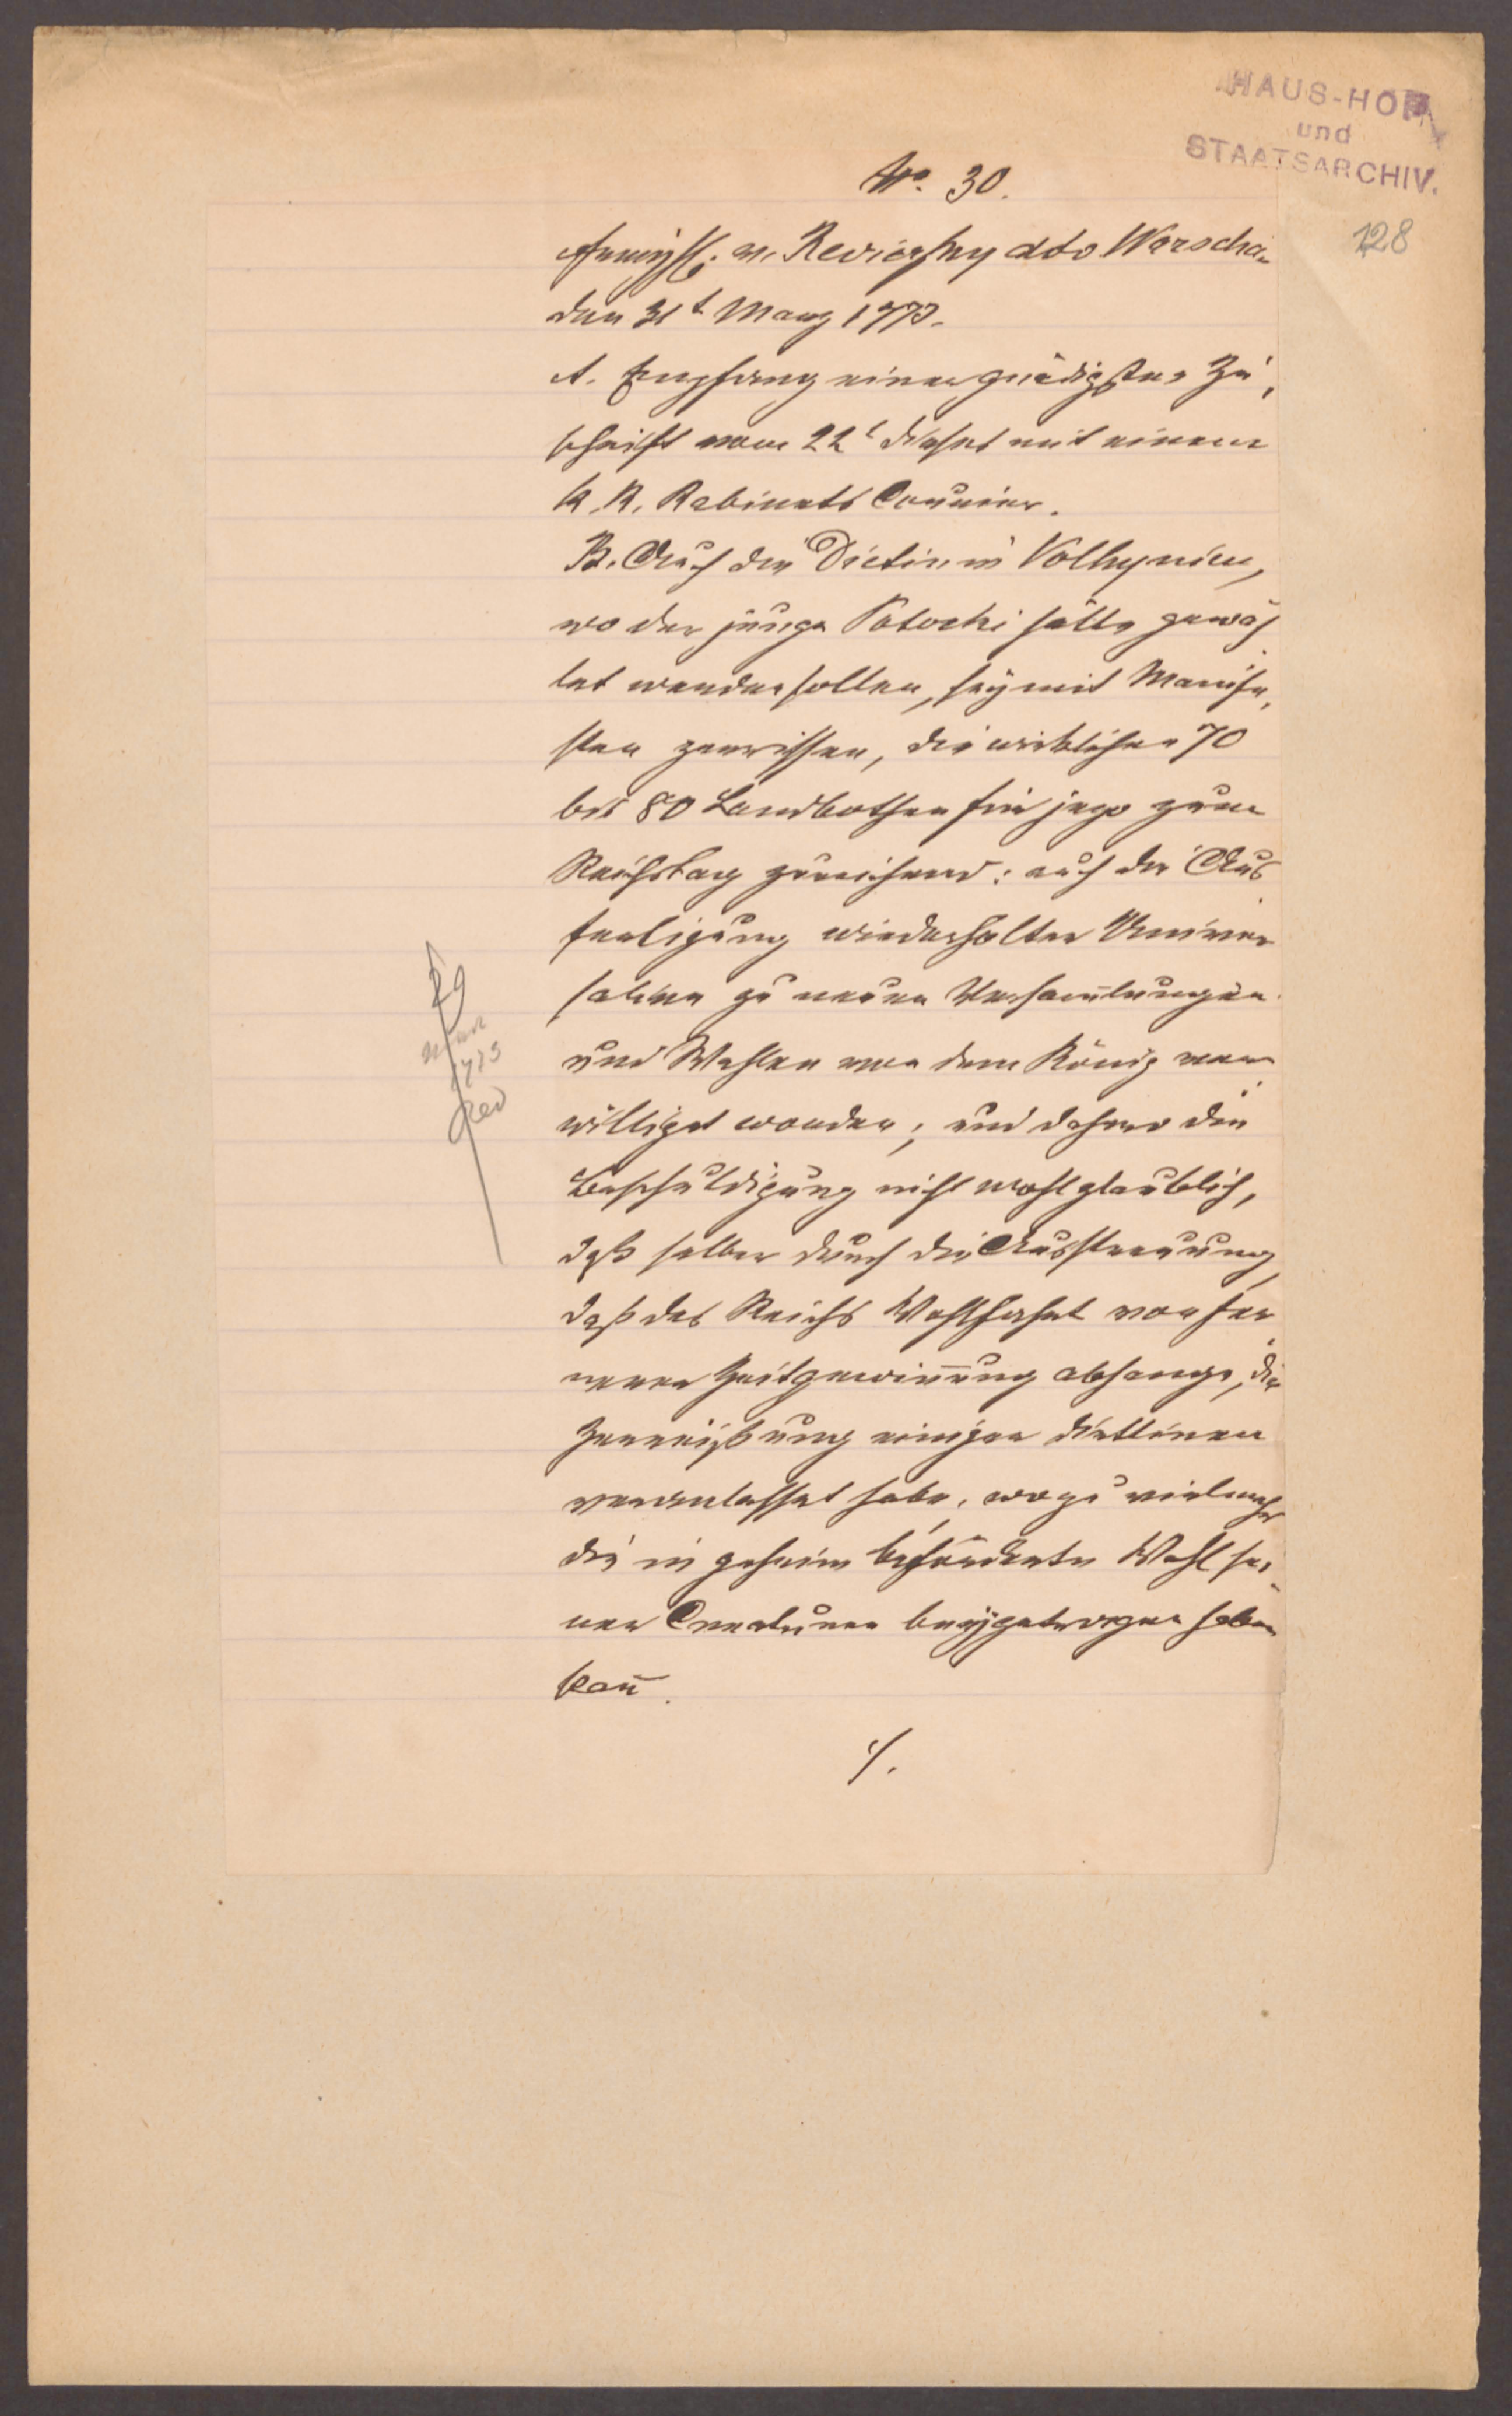 HAUS-HOF
und
STAATSARCHIV.
128
No. 30.
v. Reviczky ddo Warschau
den 31t März 1773.
A. Empfang einer gnädigsten Zu,
schrift vom 22t dieses mit einem
K. K. Kabinets Courier.
B. Auch die Dietin in Volhynien,
wo der junge Potocki hätte gewäh
let werden sollen, sey mit Manife,
sten zerrissen, die wirklichen 70
bis 80 Landbothen hin jego zum
Reichstag zureichend: auch die Aus
fertigung wiederholter Univer
salien zu neuen Versam̄lungen
und Wahlen von dem König ver
williget worden; und dahero die
Beschuldigung nicht wohl glaublich,
daß selber durch die Ausstreuung,
daß des Reichs Wohlfahrt von fer
neren Zeitgewin̄ung abhange, die
Zerreißung einiger Dietlinen
veranlasset habe, wozu vielmehr
die in geheim beförderte Wahl sei,
ner Creaturen beygetragen haben
kan̄.
./.
29
1773
Rev